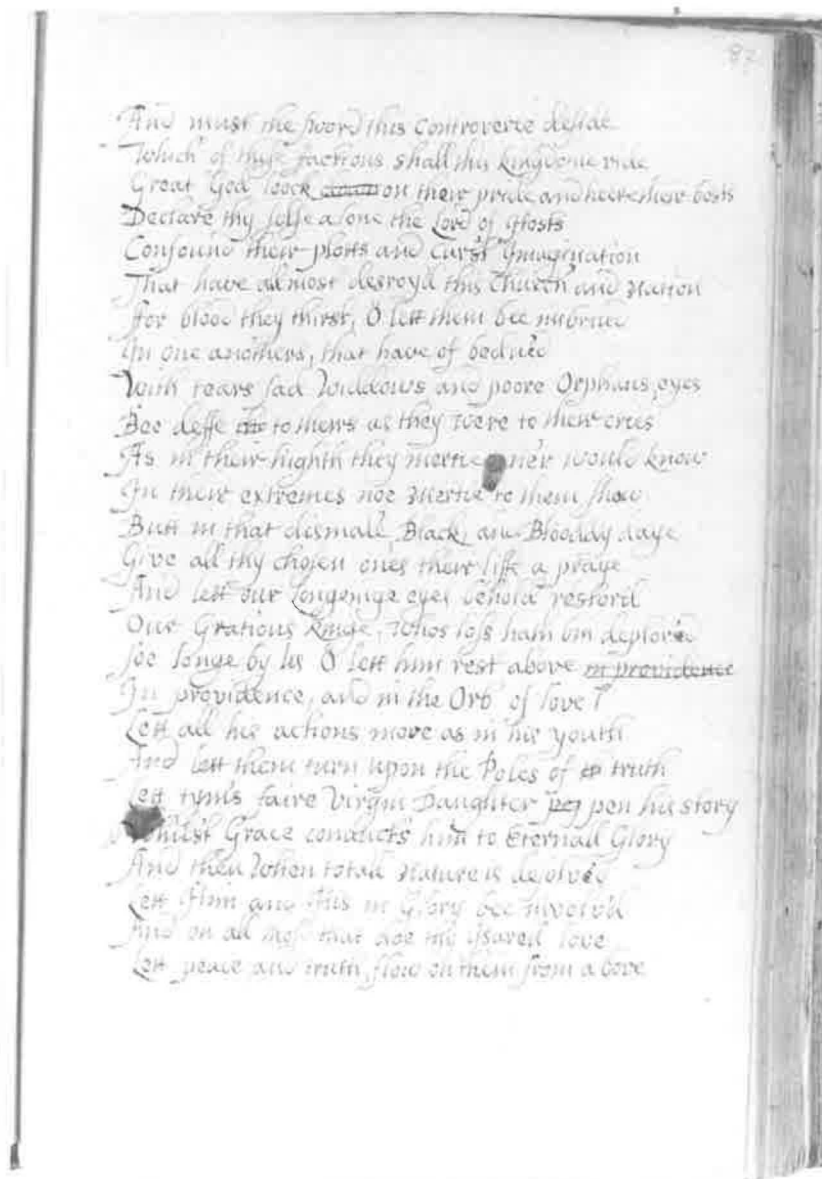 87
And must the sword this Controvercie deside
Which of these factions shall this kingdome ride
Great God loock on their pride and heer their bosts
Declare thy selfe alone the Lord of Hosts
Confound their plotts and Curst Imagination
That have allmost desroyd this Church and Nation
For blood they thirst, O lett them bee imbrued
In one anothers, that have of bedued
With tears sad Widdows and poore Orphans, eyes
Bee deffe to theirs as they were to their cries
As in their highth they mercie ner would know
In their extremes noe Mercie to them show
Butt in that dismall, Black, and Blooddy daye
Give all thy chosen ones their liffe a praye
And lett our longeinge eyes behold restord
Our Gratious kinge, Whos loss hath bin deplor'd
soe longe by us O lett him rest above in providence
In providence, and in the Orb of love
Lett all his actions move as in his youth
And lett them turn upon the Poles of truth
Lett tym's faire Virgin Daughter pen his story
Whilst Grace conducts him to Eternall Glory
And then When totall Nature is desolv'd
Lett Him and His in Glory bee involv'd
And on all those that doe love
Lett peace and truth, flow on them from above